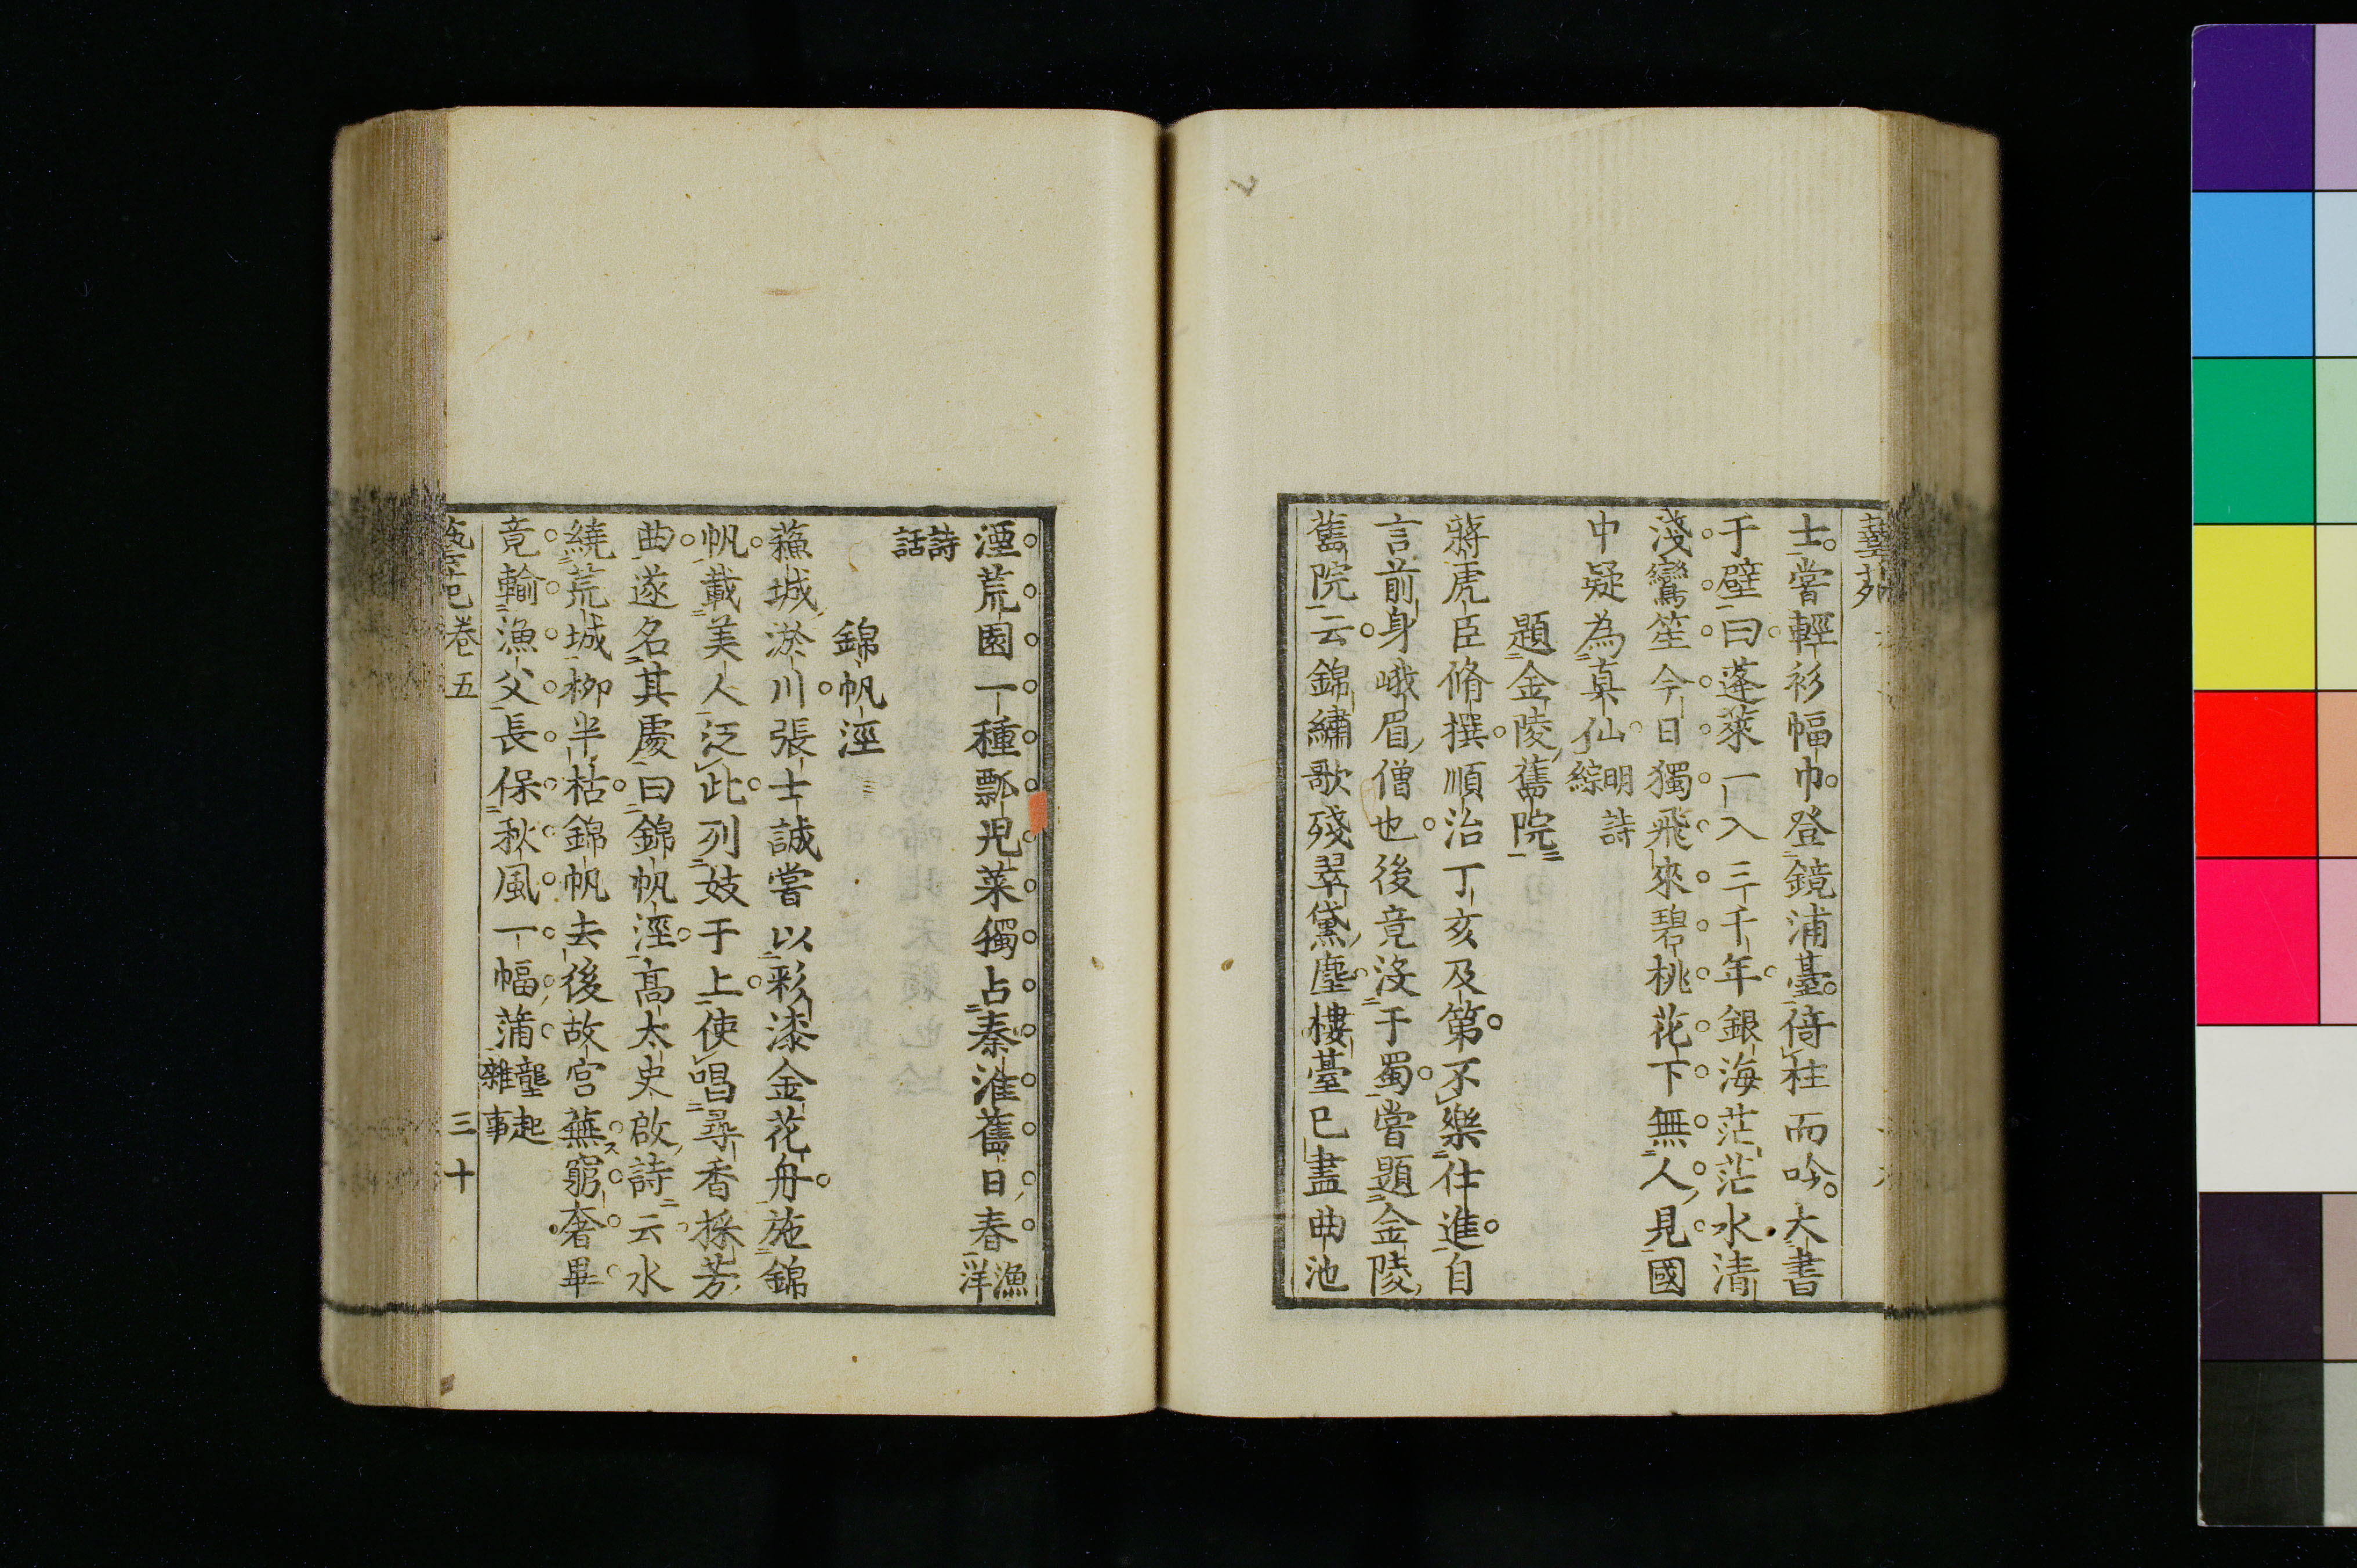 士嘗輕衫幅巾登鏡浦臺倚柱而吟大書
于壁曰蓬萊一入三千年銀海茫茫水清
淺鸞笙今日獨飛來碧桃花下無人見國
中疑為真仙明詩綜
題金陵舊院
蔣虎臣脩撰順治丁亥及第不樂仕進自
言前身峨眉僧也後竟沒于蜀嘗題金陵
舊院云錦繡歌殘翠黛塵樓臺已盡曲池
湮荒園一種瓢兒菜獨占秦淮舊日春漁洋
詩話
錦帆涇
蘓城淤川張士誠嘗以彩漆金花舟施錦
帆載美人泛此列妓于上使唱尋香採芳
曲遂名其處曰錦帆涇高太史啟詩云水
繞荒城柳半枯錦帆去後故宮蕪窮奢畢
竟輸漁父長保秋風一幅蒲壟起雜事
卷五 三十